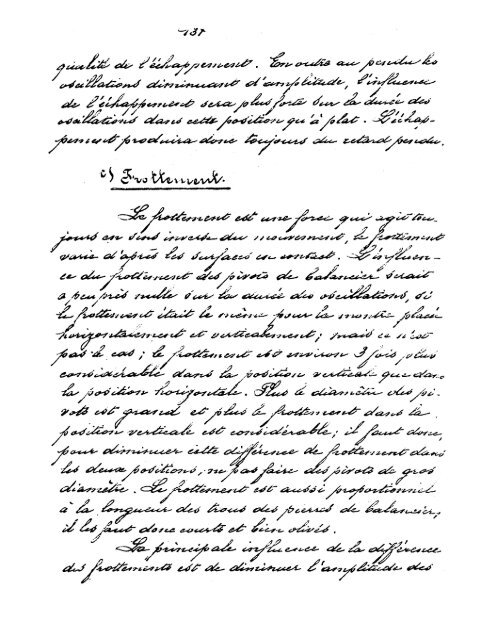 131
qualité de l'échappement. En outre au pendu les
oscillations diminuant d'amplitude, l'influence
de l'échappement sera plus forte sur la durée des
oscillations dans cette position qu'à plat. L'échap-
pement produira donc toujours du retard pendu.
c) Frottement.
Le frottement est une force qui agit tou-
jours en sens inverse du mouvement, le frottement
varie d'après les surfaces en contact. L'influen-
ce du frottement des pivots de balancier serait
a peu près nulle sur la durée des oscillations, si
le frottement était le même pour la montre placée
horizontalement et verticalement; mais ce n'est
pas le cas; le frottement est environ 3 fois plus
considérable dans la position verticale que dans
la position horizontale. Plus le diamètre des pi-
vots est grand et plus le frottement dans la
position verticale est considérable; il faut donc,
pour diminuer cette différence de frottement dans
les deux positions, ne pas faire des pivots de gros
diamètre. Le frottement est aussi proportionnel
à la longueur des trous des pierres de balancier,
il les faut donc courts et bien olivés.
La principale influence de la différence
des frottements est de diminuer l'amplitude des